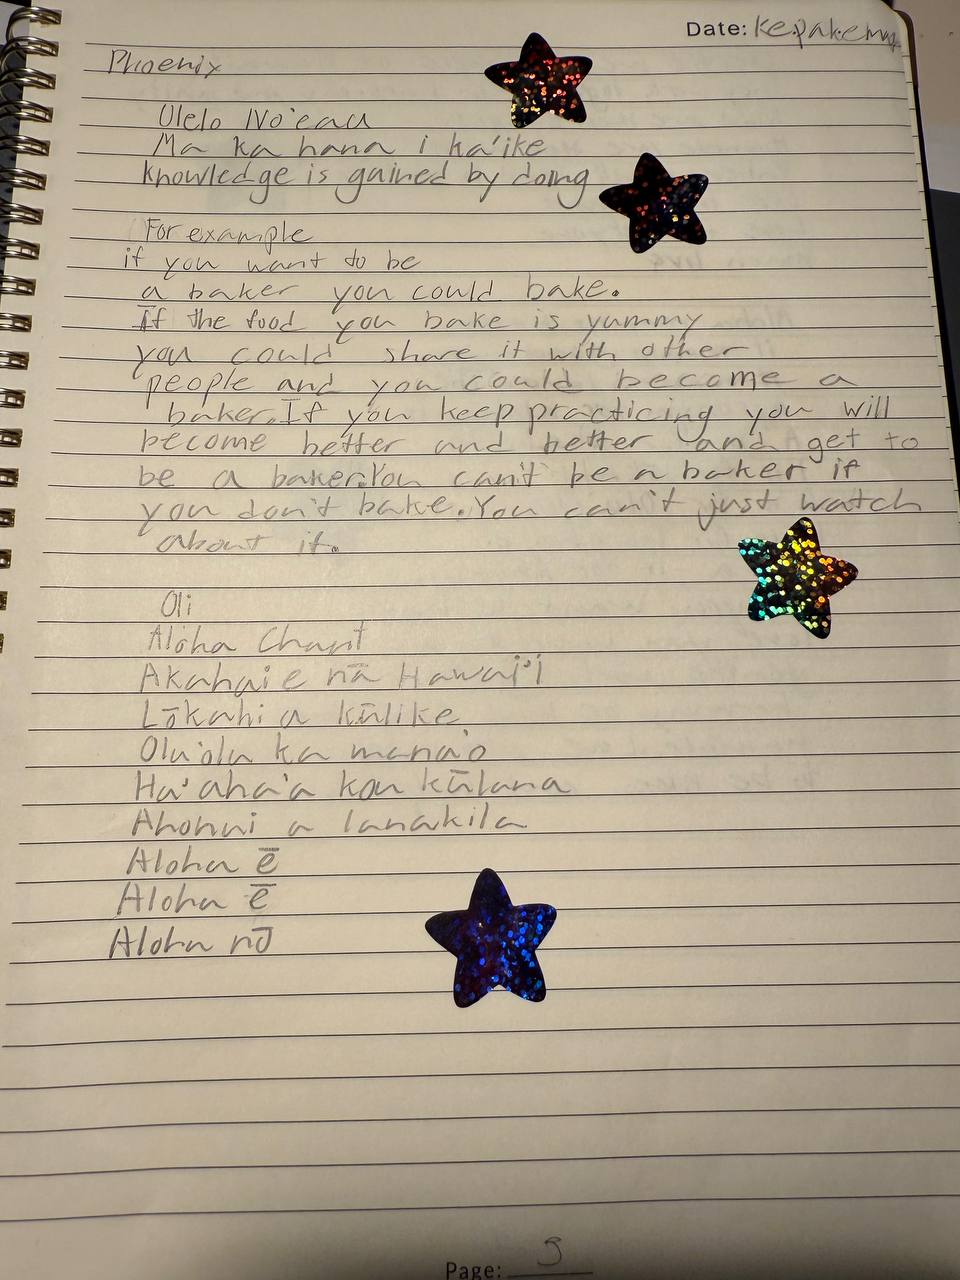 Date: Kepakemapa
Phoenix
Olelo No'eau
Ma ka hana i ka 'ike
knowledge is gained by doing
For example
if you want to be
a baker you could bake.
If the food you bake is yummy
you could share it with other
people and you could become a
baker. If you keep practicing you will
become better and better and get to
be a baker. You can't be a baker if
you don't bake. You can't just watch
about it.
Oli
Aloha Chant
Akahai e nā Hawai'i
Lōkahi a kūlike
Olu'olu ka mana'o
Ha'aha'a kou kūlana
Ahonui a lanakila
Aloha ē
Aloha ē
Aloha nō
Page: